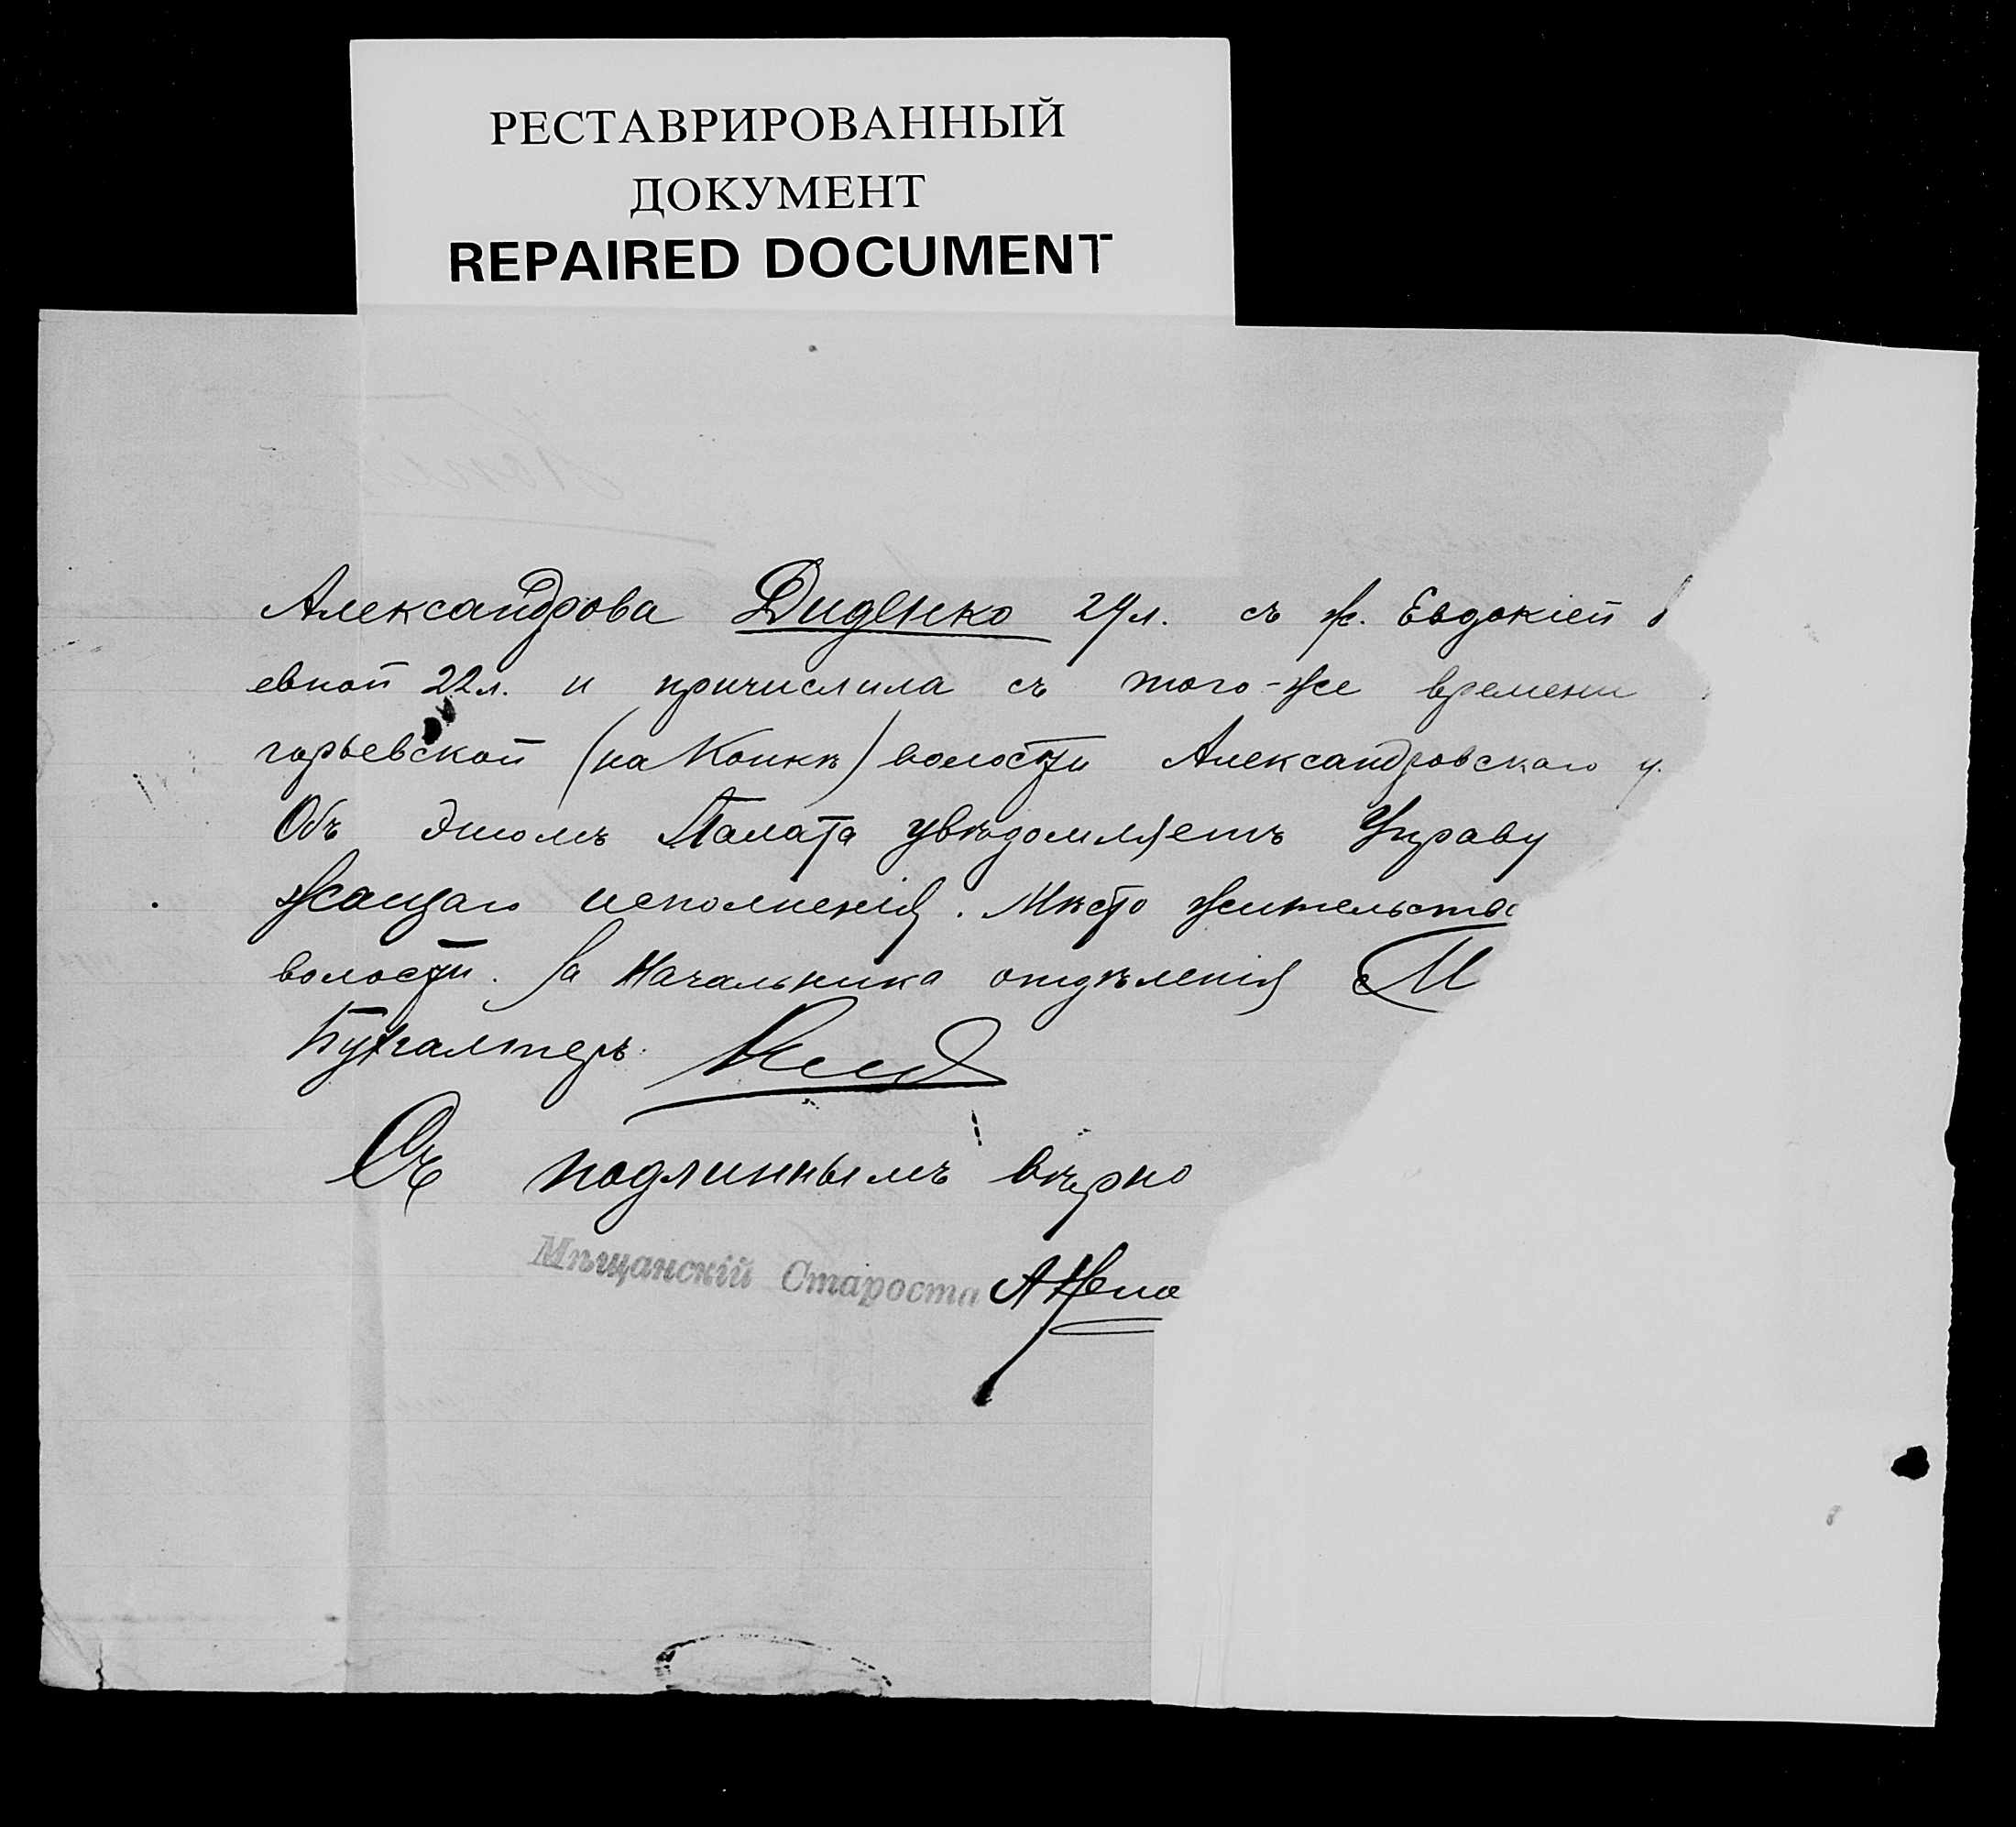 РЕСТАВРИРОВАННЫЙ
ДОКУМЕНТ
REPAIRED DOCUMENT
Александрова Диденко 24 л. съ ж. Евдокіей
евной 22 л. и причислила съ того-же времени
горьевской (на Конкѣ) волости Александровскаго у.
Объ этомъ Палата увѣдомляетъ Управу
жащаго исполненія. Мѣсто жительства
волости. За Начальника отдѣленія М
Бухгалтеръ
Съ подлиннымъ вѣрно
Мѣщанскій Староста